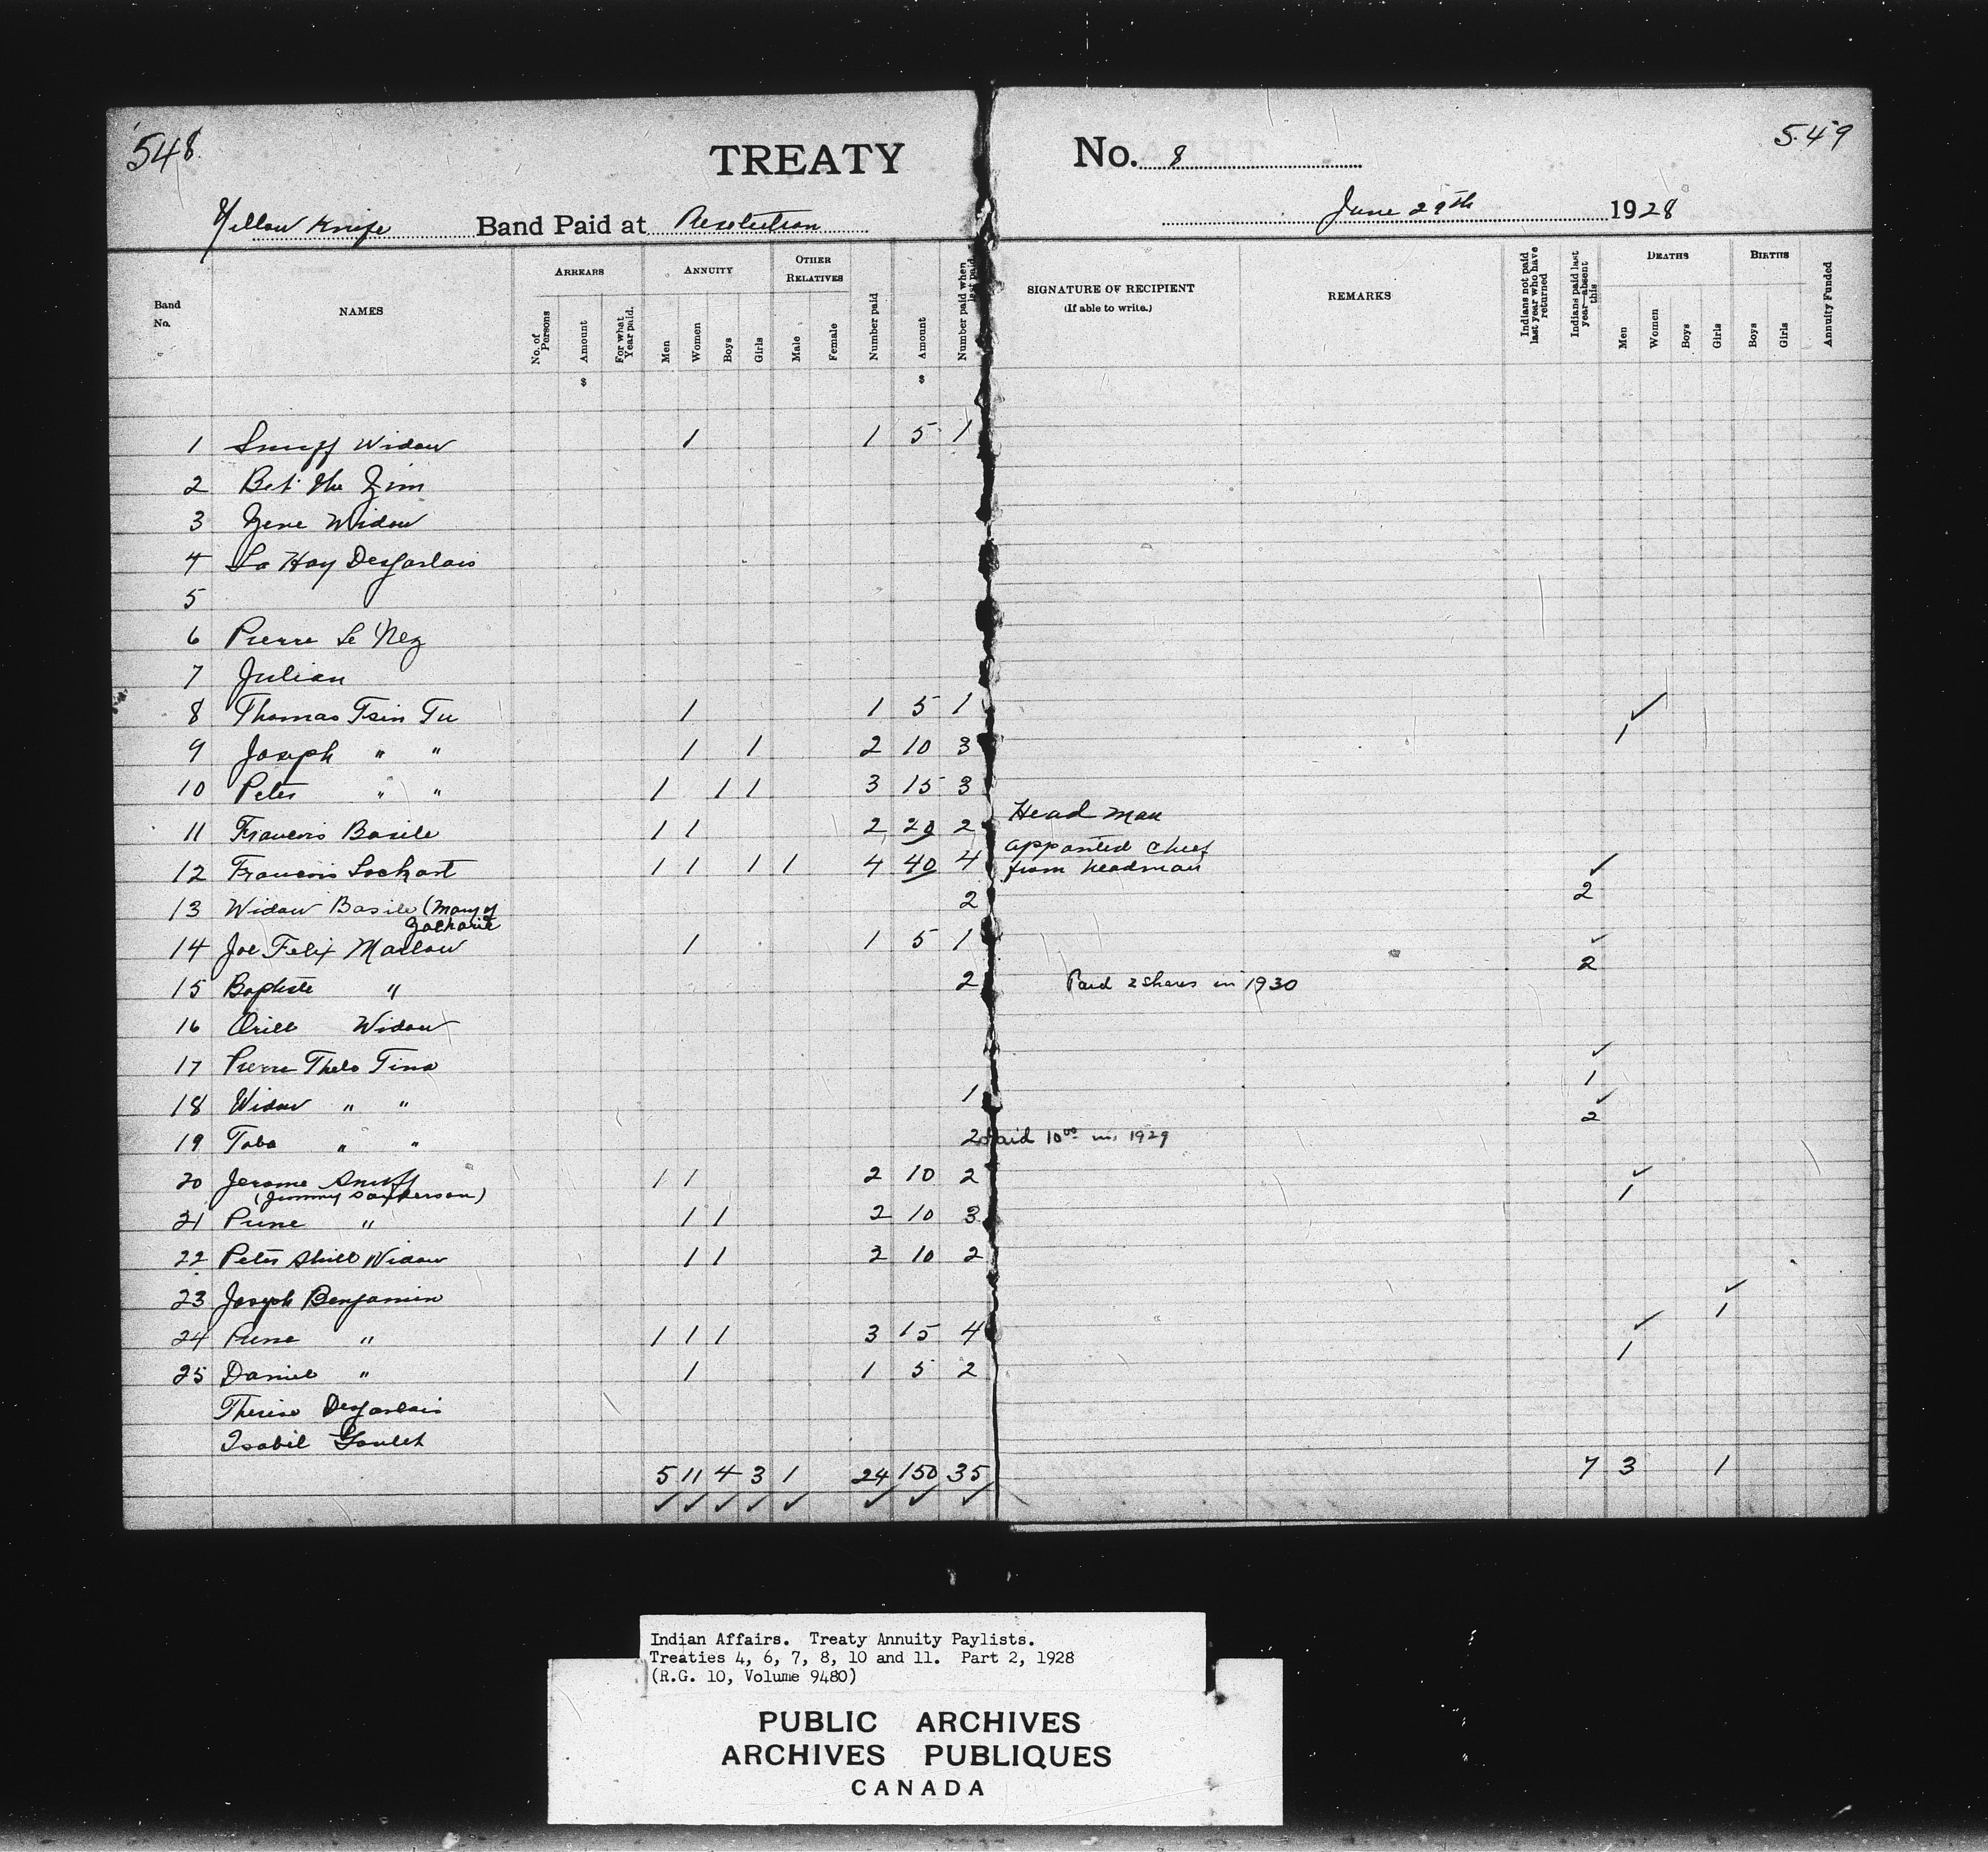 548
549
TREATY No. 8
Yellow Knife Band Paid at Resolution June 29th 1928
Band No.
NAMES
ARREARS
No. of Persons
Amount
For what Year paid.
ANNUITY
Men
Women
Boys
Girls
OTHER RELATIVES
Male
Female
Number paid
Amount
Number paid when last paid
SIGNATURE OF RECIPIENT
(If able to write.)
REMARKS
Indians not paid last year who have returned
Indians paid last year—absent this
DEATHS
Men
Women
Boys
Girls
BIRTHS
Boys
Girls
Annuity Funded
$ $
1 Snuff Widow 1 1 5 1
2 Bet the Jim
3 Gene Widow
4 La Hay Desjarlais
5
6 Pierre Le Nez
7 Julian
8 Thomas Tsin Tu 1 1 5 1 ✓
9 Joseph " " 1 1 2 10 3 1
10 Peter " " 1 1 1 3 15 3
11 Francois Basile 1 1 2 20 2 Head man
12 Francois Lockart 1 1 1 1 4 40 4 appointed Chief from headman ✓
13 Widow Basile (Mary of Zacharie 2 2
14 Joe Felix Marlow 1 1 5 1 ✓
15 Baptiste " 2 Paid 2 shares in 1930 2
16 Widow
17 Pierre Thelo Tina ✓
18 Widow " " 1 1 ✓
19 Toba " " 2 Paid 10⁰⁰ in 1929 2
20 Jerome Snuff 1 1 2 10 2 ✓
(Jimmy Sanderson)
21 Pierre " 1 1 2 10 3 1
22 Peter Widow 1 1 2 10 2
23 Joseph Benjamin ✓
24 Pierre " 1 1 1 3 15 4 1 ✓
25 Daniel " 1 1 5 2 1
Therese Desjarlais
Isabil Goulet
5 11 4 3 1 24 150 35 7 3 1
✓ ✓ ✓ ✓ ✓ ✓ ✓ ✓
Indian Affairs. Treaty Annuity Paylists.
Treaties 4, 6, 7, 8, 10 and 11. Part 2, 1928
(R.G. 10, Volume 9480)
PUBLIC ARCHIVES
ARCHIVES PUBLIQUES
CANADA